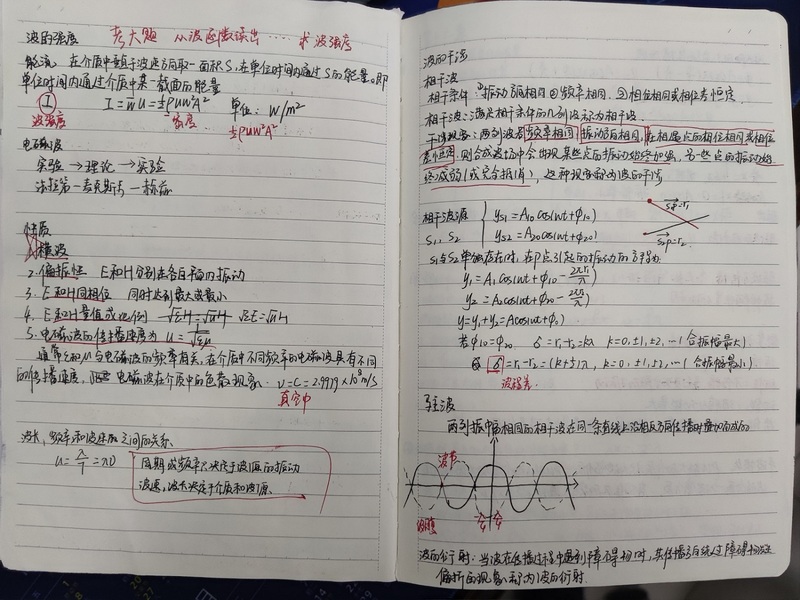 波的强度 考大题 从波函数读出…… 求波强度
能流：在介质中垂直于波速方向取一面积S,在单位时间内通过S的能量.即
单位时间内通过介质中某一截面的能量
I I=w̄u=½ρuω²A² 单位：W/m²
波强度 ½ρuω²A²
电磁波
实验→理论→实验
法拉第—麦克斯韦—赫兹
性质
1.横波
2.偏振性 E和H分别在各自平面振动
3.E和H同相位 同时达到最大或最小
4.E和H量值成比例 √εE=√μH
5.电磁波的传播速度为 u=1/√εμ
通常ε和μ与电磁波的频率有关,在介质中不同频率的电磁波具有不同
的传播速度, 电磁波在介质中的色散现象. v=c=2.9979×10⁸m/s
真空中
波长,频率和波速之间的关系
u=λ/T=λν
周期或频率只决定于波源的振动
波速,波长决定于介质和波源.
波的干涉
相干波
相干条件：①振动方向相同②频率相同.③相位相同或相位差恒定.
相干波：满足相干条件的几列波称为相干波.
干涉现象：两列波若频率相同,振动方向相同,在相遇点的相位相同或相位
差恒定.则合成波场中会出现某些点的振动始终加强,另一些点的振动始
终减弱(或完全抵消),这种现象称为波的干涉
相干波源 yS1=A10cos(ωt+φ10) S1P=r1
S1、S2 yS2=A20cos(ωt+φ20) S2P=r2
S1与S2单独存在时,在P点引起的振动的方程为
y1=A1cos(ωt+φ10-2πr1/λ)
y2=A2cos(ωt+φ20-2πr2/λ)
y=y1+y2=Acos(ωt+φ0)
若φ10=φ20, δ=r1-r2=kλ k=0,±1,±2,…(合振幅最大)
δ=r1-r2=(k+½)λ, k=0,±1,±2,…(合振幅最小)
波程差
驻波
两列振幅相同的相干波在同一条直线上沿相反方向传播时叠加而成的
波节
波腹
波的衍射：当波在传播过程中遇到障碍物时,其传播方向绕过障碍物发生
偏折的现象,称为波的衍射